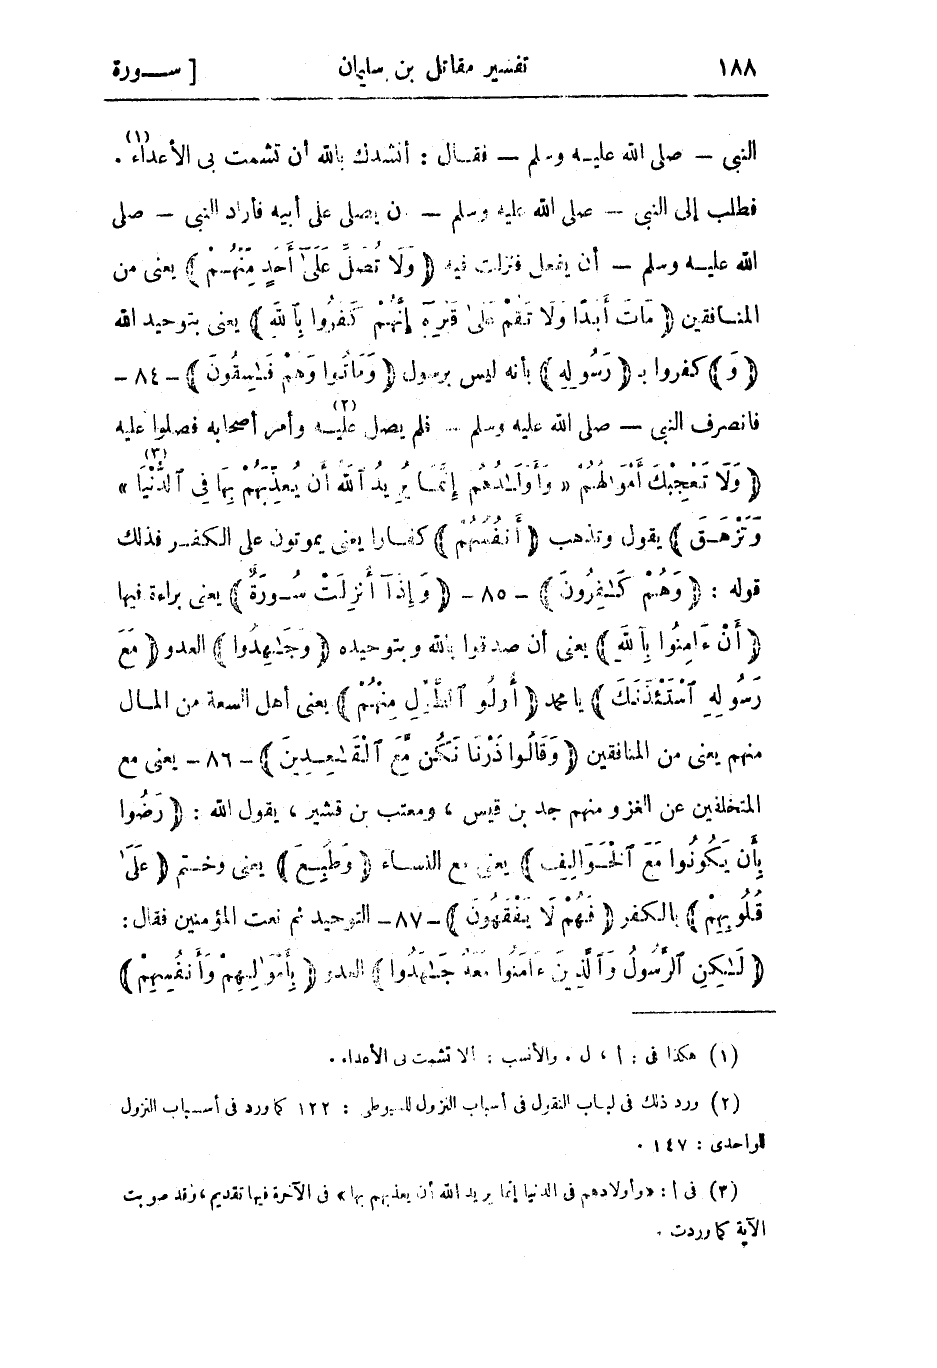 ١٨٨ تفسير مقاتل بن سليمان [ ســورة
النبى — صلى الله عليـه وسلم — فقـال : أنشدك بالله أن تشمت بى الأعداء(١) .
فطلب إلى النبى — صلى الله عليه وسلم — ن يصلى على أبيه فأراد النبى — صلى
الله عليـه وسلم — أن يفعل فنزلت فيه ﴿ وَلَا تُصَلِّ عَلَىٰٓ أَحَدٍ مِّنْهُـم ﴾ يعنى من
المنـافقين ﴿ مَّاتَ أَبَدًا وَلَا تَقُمْ عَلَىٰ قَبْرِهِٓ إِنَّهُمْ كَفَرُوا بِٱللَّهِ ﴾ يعنى بتوحيد الله
﴿ وَ ﴾ كفروا بـ ﴿ رَسُولِهِ ﴾ بأنه ليس برسول ﴿ وَمَاتُوا وَهُمْ فَـٰسِقُونَ ﴾ - ٨٤ -
فانصرف النبى — صلى الله عليه وسلم — فلم يصل عليـه(٢) وأمر أصحابه فصلوا عليه
﴿ وَلَا تُعْجِبْكَ أَمْوَٰلُهُمْ « وَأَوْلَـٰدُهُم إِنَّمَـا يُرِيدُ ٱللَّهُ أَن يُعَذِّبَهُمْ بِهَا فِى ٱلدُّنْيَا(٣) »
وَتَزْهَـقَ ﴾ يقول وتذهب ﴿ أَنفُسُهُمْ ﴾ كفـارا يعنى يموتون على الكفـر فذلك
قوله : ﴿ وَهُمْ كَـٰفِرُونَ ﴾ - ٨٥ - ﴿ وَإِذَآ أُنزِلَتْ سُـورَةٌ ﴾ يعنى براءة فيها
﴿ أَنْ ءَامِنُوا بِٱللَّهِ ﴾ يعنى أن صدقوا بالله وبتوحيده ﴿ وَجَـٰهِدُوا ﴾ العدو ﴿ مَعَ
رَسُولِهِ ٱسْتَـْٔذَنَكَ ﴾ يا محمد ﴿ أُولُو ٱلطَّوْلِ مِنْهُمْ ﴾ يعنى أهل السعة من المـال
منهم يعنى من المنافقين ﴿ وَقَالُوا ذَرْنَا نَكُن مَّعَ ٱلْقَـٰعِـدِينَ ﴾ - ٨٦ - يعنى مع
المتخلفين عن الغزو منهم جد بن قيس ، ومعتب بن قشير ، يقول الله : ﴿ رَضُوا
بِأَن يَكُونُوا مَعَ ٱلْخَـوَالِفِ ﴾ يعنى مع النسـاء ﴿ وَطُبِـعَ ﴾ يعنى وختـم ﴿ عَلَىٰ
قُلُوبِهِمْ ﴾ بالـكفر ﴿ فَهُمْ لَا يَفْقَهُونَ ﴾ - ٨٧ - التوحيد ثم نعت المؤمنين فقال :
﴿ لَـٰكِنِ ٱلرَّسُولُ وَٱلَّذِينَ ءَامَنُوا مَعَهُ جَـٰهَدُوا ﴾ العدو ﴿ بِأَمْوَٰلِهِمْ وَأَنفُسِهِمْ ﴾
(١) هكذا فى : أ ، ل . والأنسب : ألا تشمت بى الأعداء .
(٢) ورد ذلك فى لبـاب النقول فى أسباب النزول للسيوطى : ١٢٢ كما ورد فى أسـباب النزول
للواحدى : ١٤٧ .
(٣) فى أ : «وأولادهم فى الدنيا إنما يريد الله أن يعذبهم بها» فى الآخرة فيها تقديم ، وقد صوبت
الآية كما وردت .